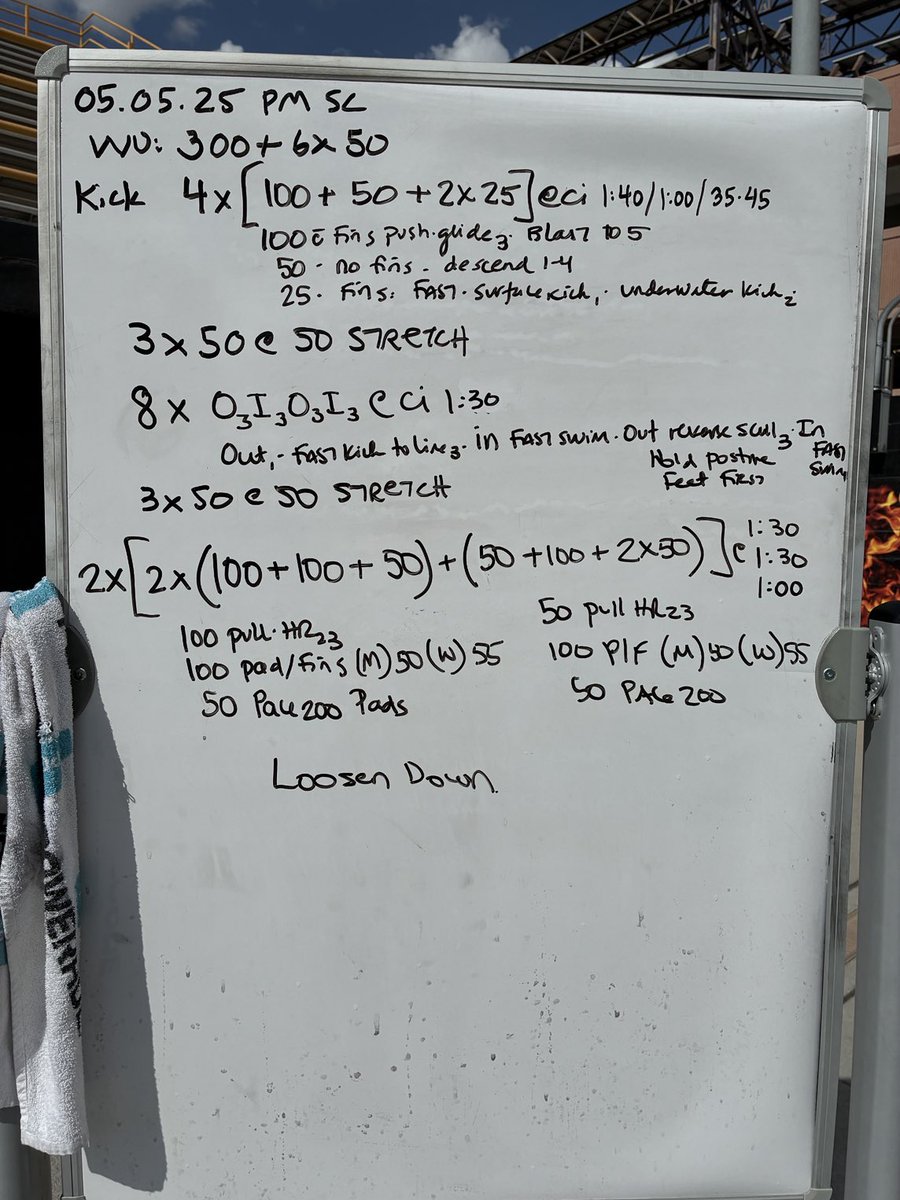 05.05.25 PM SC
WU: 300 + 6 x 50
Kick 4x [100 + 50 + 2x25] @ci 1:40/1:00/35.45
100 c̄ Fins push.glide 3. Blast to 5
50 - no fins - descend 1-4
25. Fins: FAST. surface kick 1. underwater kick 2
3 x 50 @ 50 STRETCH
8 x O3I3O3I3 @ci 1:30
Out 1 - FAST kick to line 3. in FAST swim. Out reverse scull 3. In FAST swim
Hold posture
Feet First
3 x 50 @ 50 STRETCH
2x [2x (100+100+50) + (50+100+2x50)] @ 1:30
1:30
1:00
100 pull. HR 23
100 pad/fins (M) 50 (W) 55
50 Pace 200 Pads
50 pull HR 23
100 P/F (M) 50 (W) 55
50 PACE 200
Loosen Down.